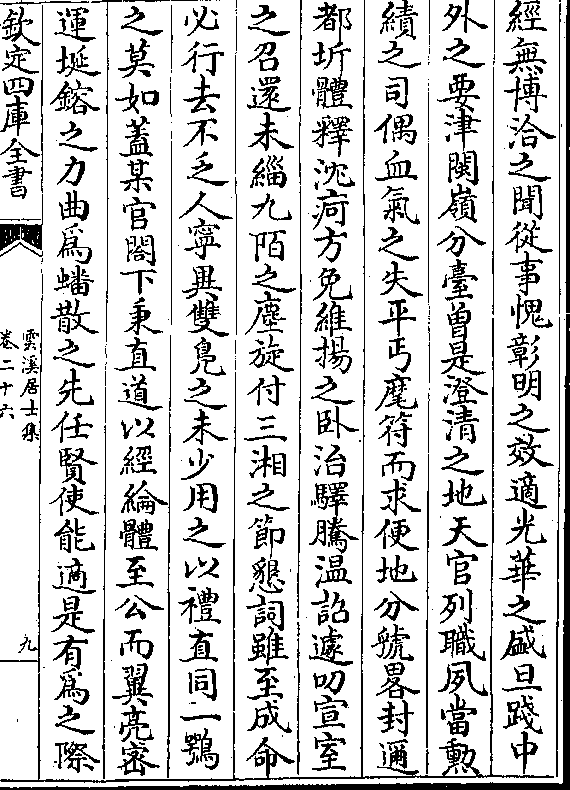 經無博洽之聞從事愧彰明之效適光華之盛旦踐中
外之要津閩嶺分臺曾是澄清之地天官列職夙當勲
績之司偶血氣之失平丐麾符而求便地分號畧封邇
都圻體釋沈疴方免維揚之卧治驛騰温詔遽叨宣室
之召還未緇九陌之塵旋付三湘之節懇詞雖至成命
必行去不乏人寧異雙鳬之未少用之以禮直同一鶚
之莫如蓋某官閤下秉直道以經綸體至公而翼亮宻
運埏鎔之力曲爲蟠散之先任賢使能適是有爲之際
欽定四庫全書
雲溪居士集
卷二十六
九